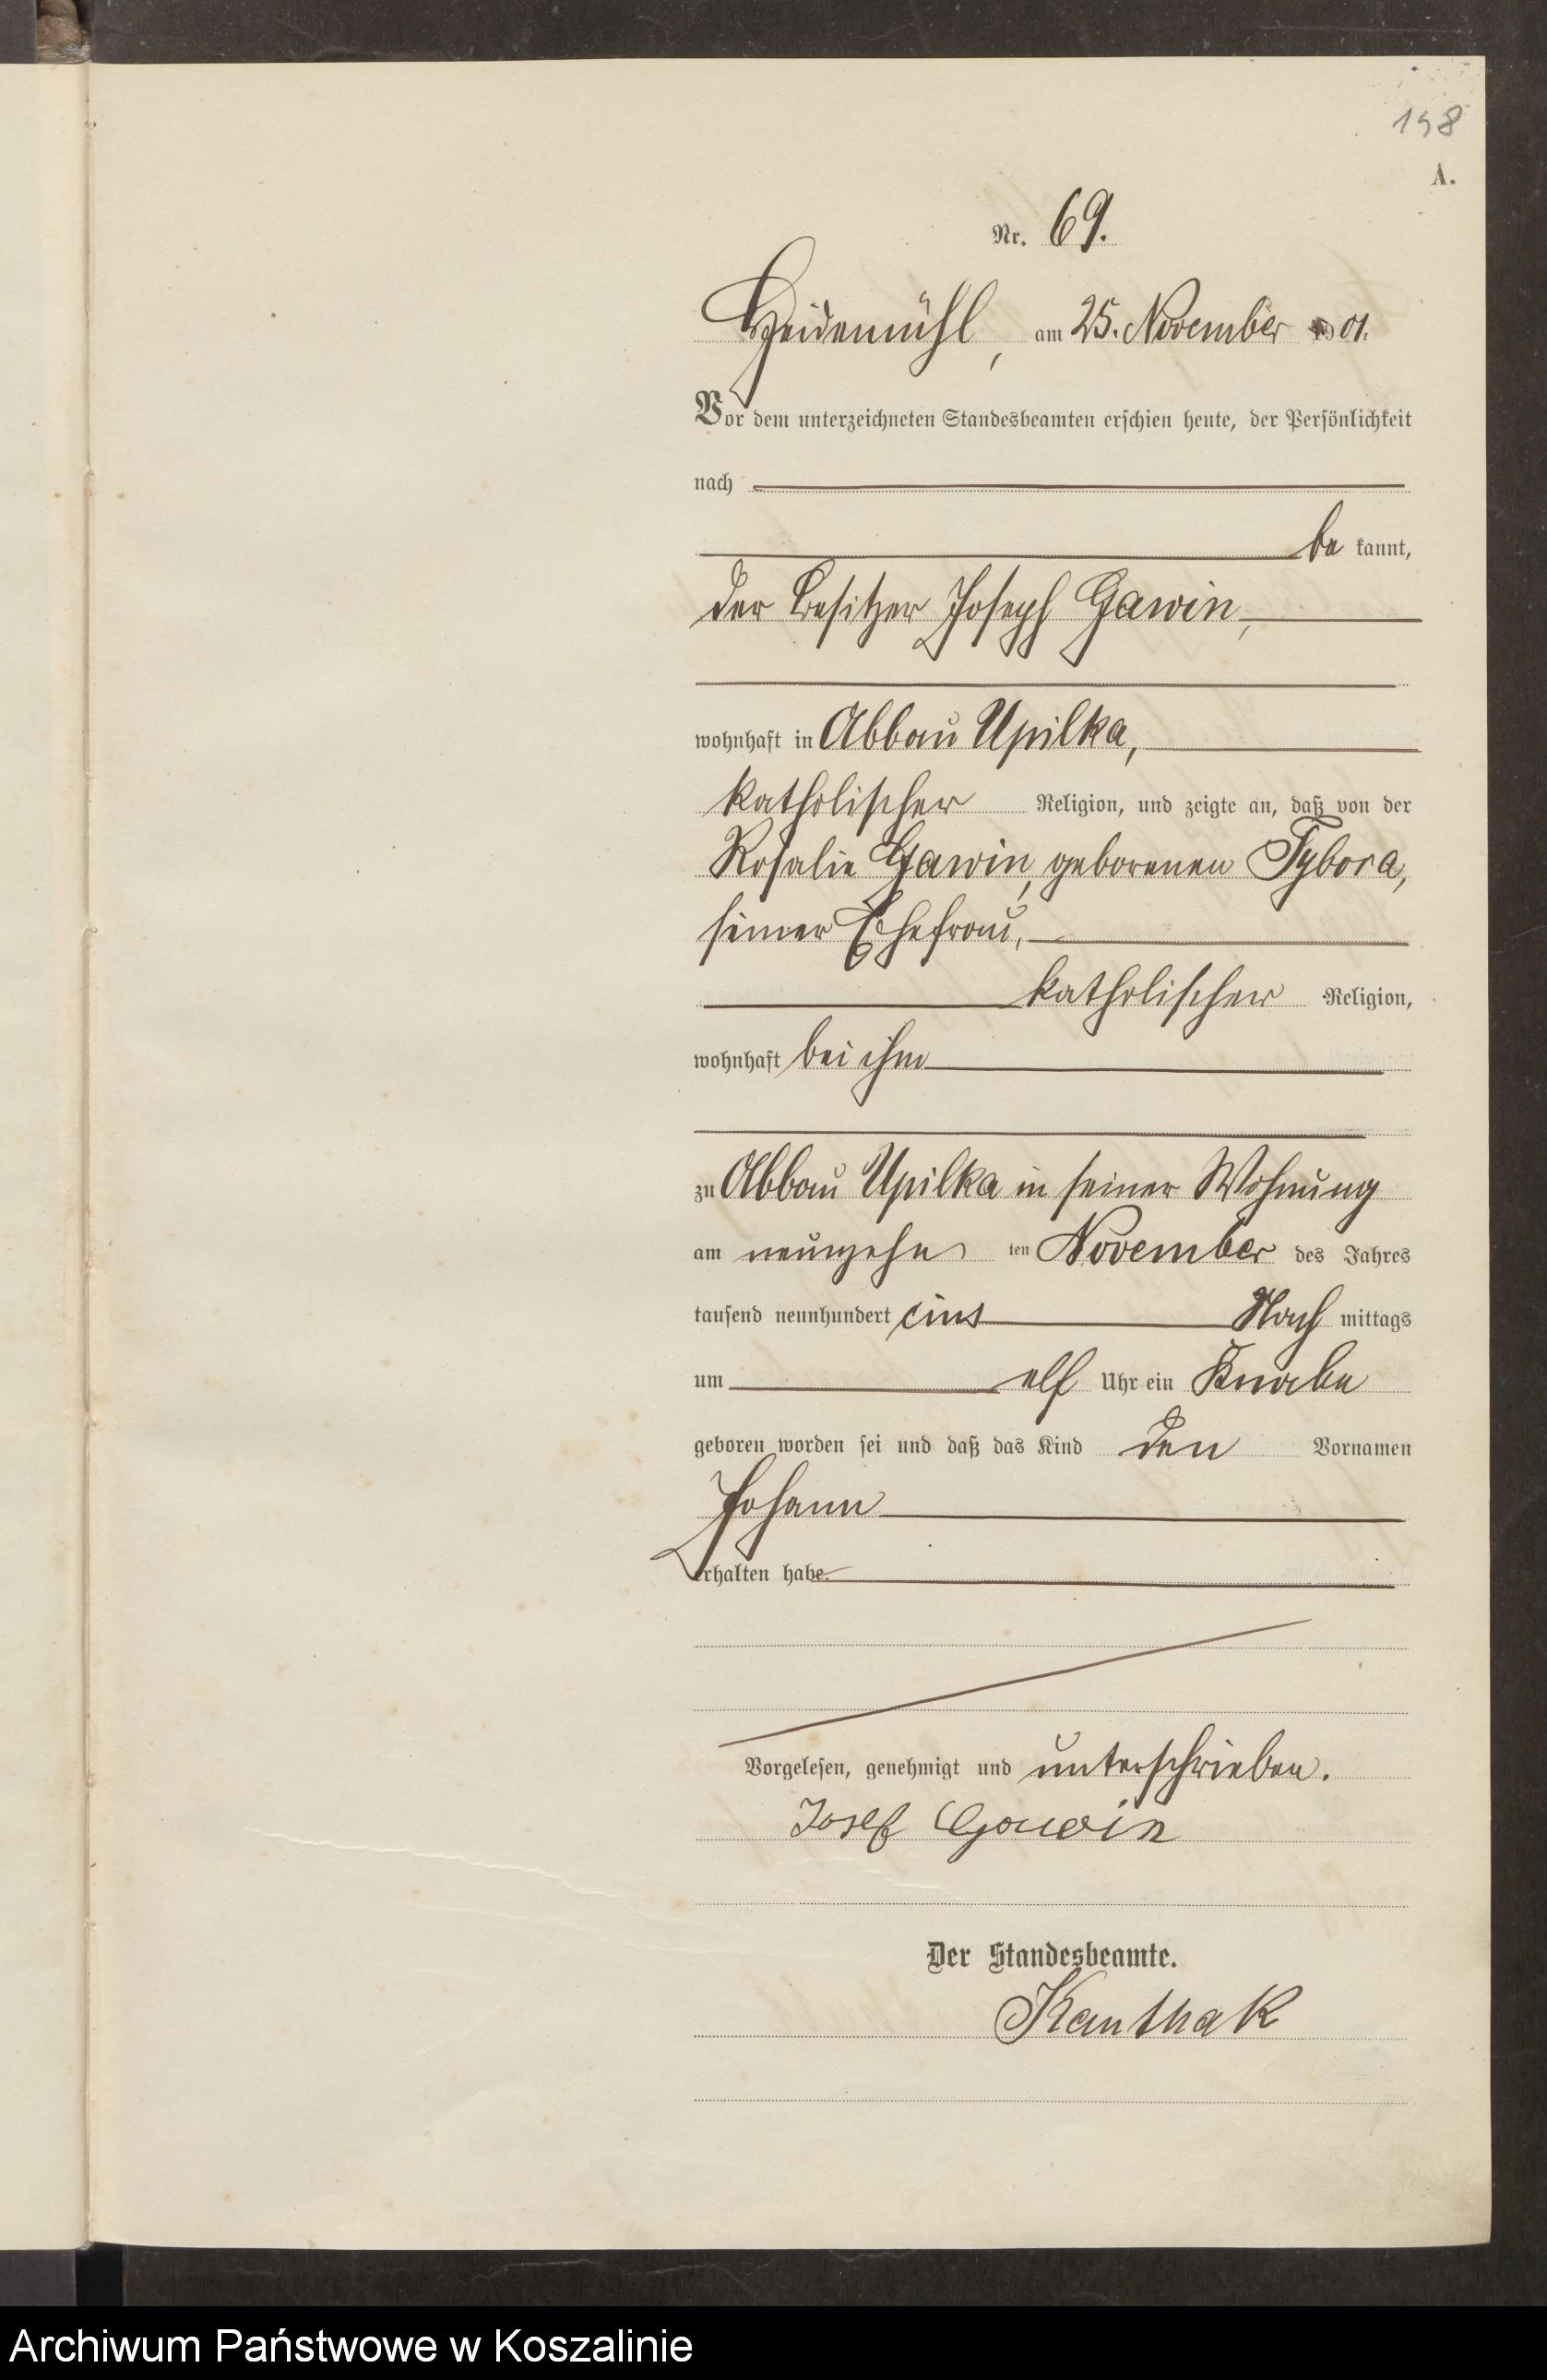 198
A.
Nr. 69.
Heidemühl, am 25. November 1901.
Vor dem unterzeichneten Standesbeamten erschien heute, der Persönlichkeit
nach
be kannt,
der Besitzer Joseph Gawin,
wohnhaft in Abbau Upilka,
katholischer Religion, und zeigte an, daß von der
Rosalie Gawin, geborenen Tybora,
seiner Ehefrau,
katholischer Religion,
wohnhaft bei ihm
zu Abbau Upilka in seiner Wohnung
am neunzehn ten November des Jahres
tausend neunhundert eins Nach mittags
um elf Uhr ein Knabe
geboren worden sei und daß das Kind den Vornamen
Johann
erhalten habe.
Vorgelesen, genehmigt und unterschrieben.
Josef Gawin
Der Standesbeamte.
Kanthak
Archiwum Państwowe w Koszalinie